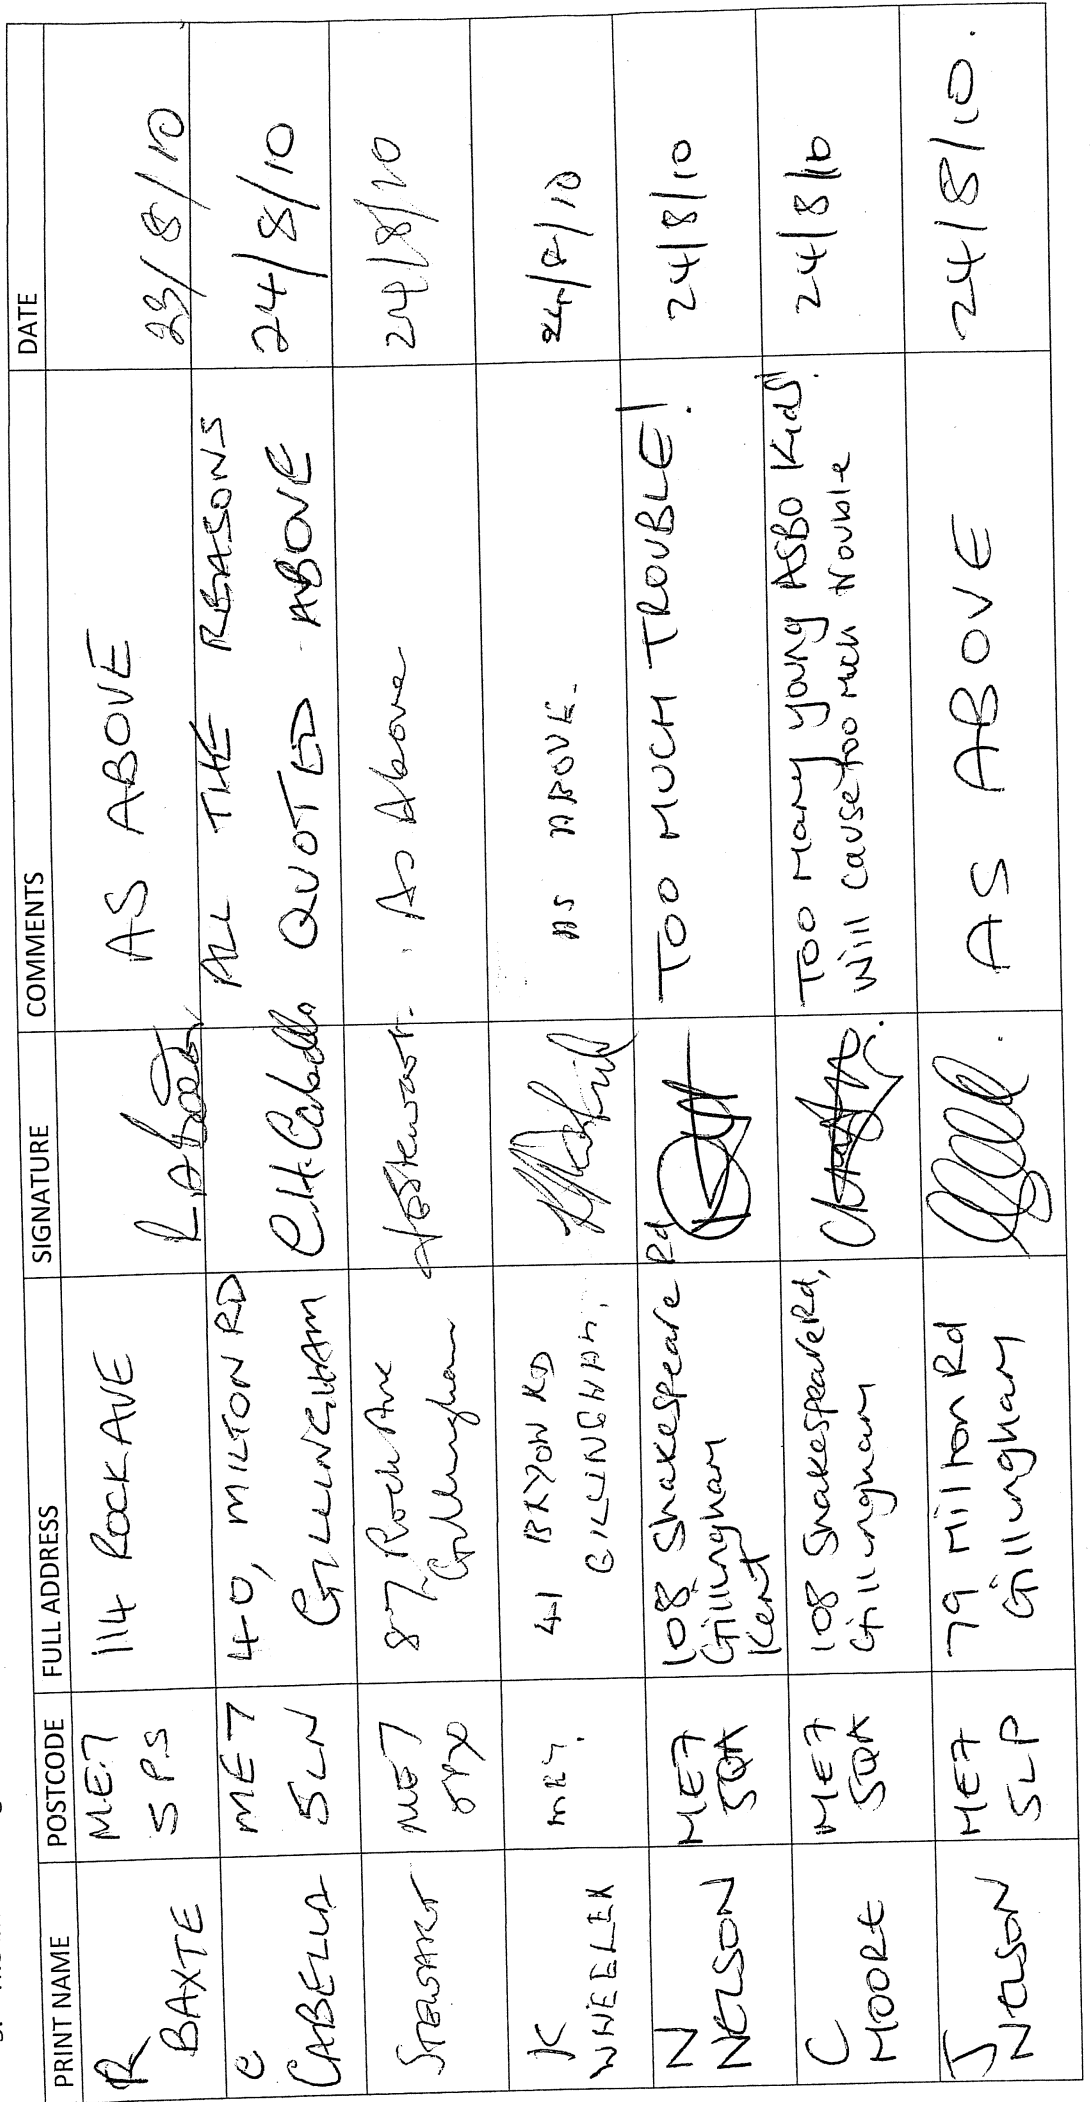 PRINT NAME POSTCODE FULL ADDRESS SIGNATURE COMMENTS DATE
R BAXTE ME7 5PS 114 ROCK AVE AS ABOVE 23/8/10
C CABELLA ME7 5LN 40, MILTON RD GILLINGHAM ALL THE REASONS QUOTED ABOVE 24/8/10
STEWART ME7 87 Rock Ave Gillingham As Above 24/8/10
K WHEELER 41 BRYON RD GILLINGHAM. AS ABOVE. 24/8/10
N NELSON ME7 5QA 108 Shakespeare Rd Gillingham Kent TOO MUCH TROUBLE! 24/8/10
C MOORE ME7 5QA 108 Shakespeare Rd, Gillingham Too Many young ASBO Kids! Will cause too much trouble 24/8/10
J NELSON ME7 5LP 79 Milton Rd Gillingham AS ABOVE 24/8/10.